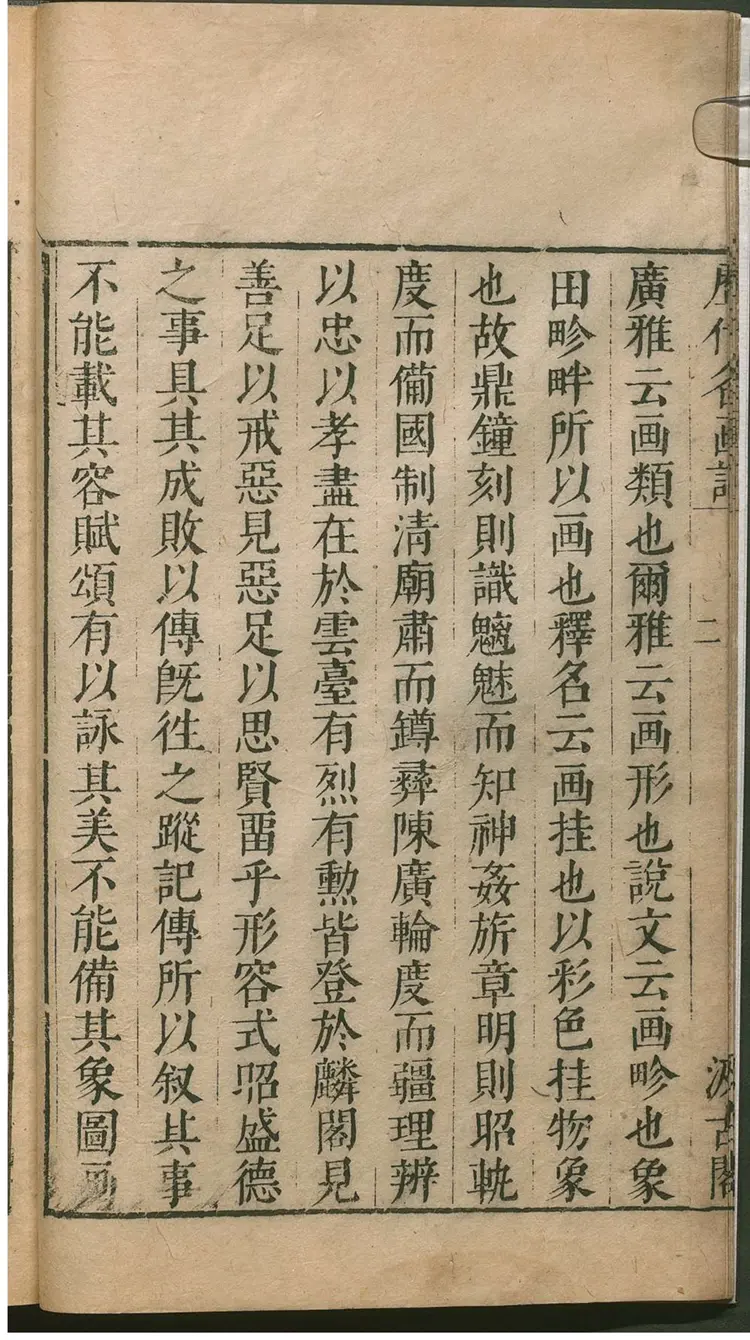 歷代名畫記 二 汲古閣
廣雅云画類也爾雅云画形也說文云画畛也象
田畛畔所以画也釋名云画挂也以彩色挂物象
也故鼎鐘刻則識魑魅而知神姦旂章明則昭軌
度而僃國制清廟肅而罇彞陳廣輪度而疆理辨
以忠以孝盡在於雲臺有烈有勳皆登於麟閣見
善足以戒惡見惡足以思賢畱乎形容式昭盛德
之事具其成敗以傳旣徃之蹤記傳所以叙其事
不能載其容賦頌有以詠其美不能備其象圖画